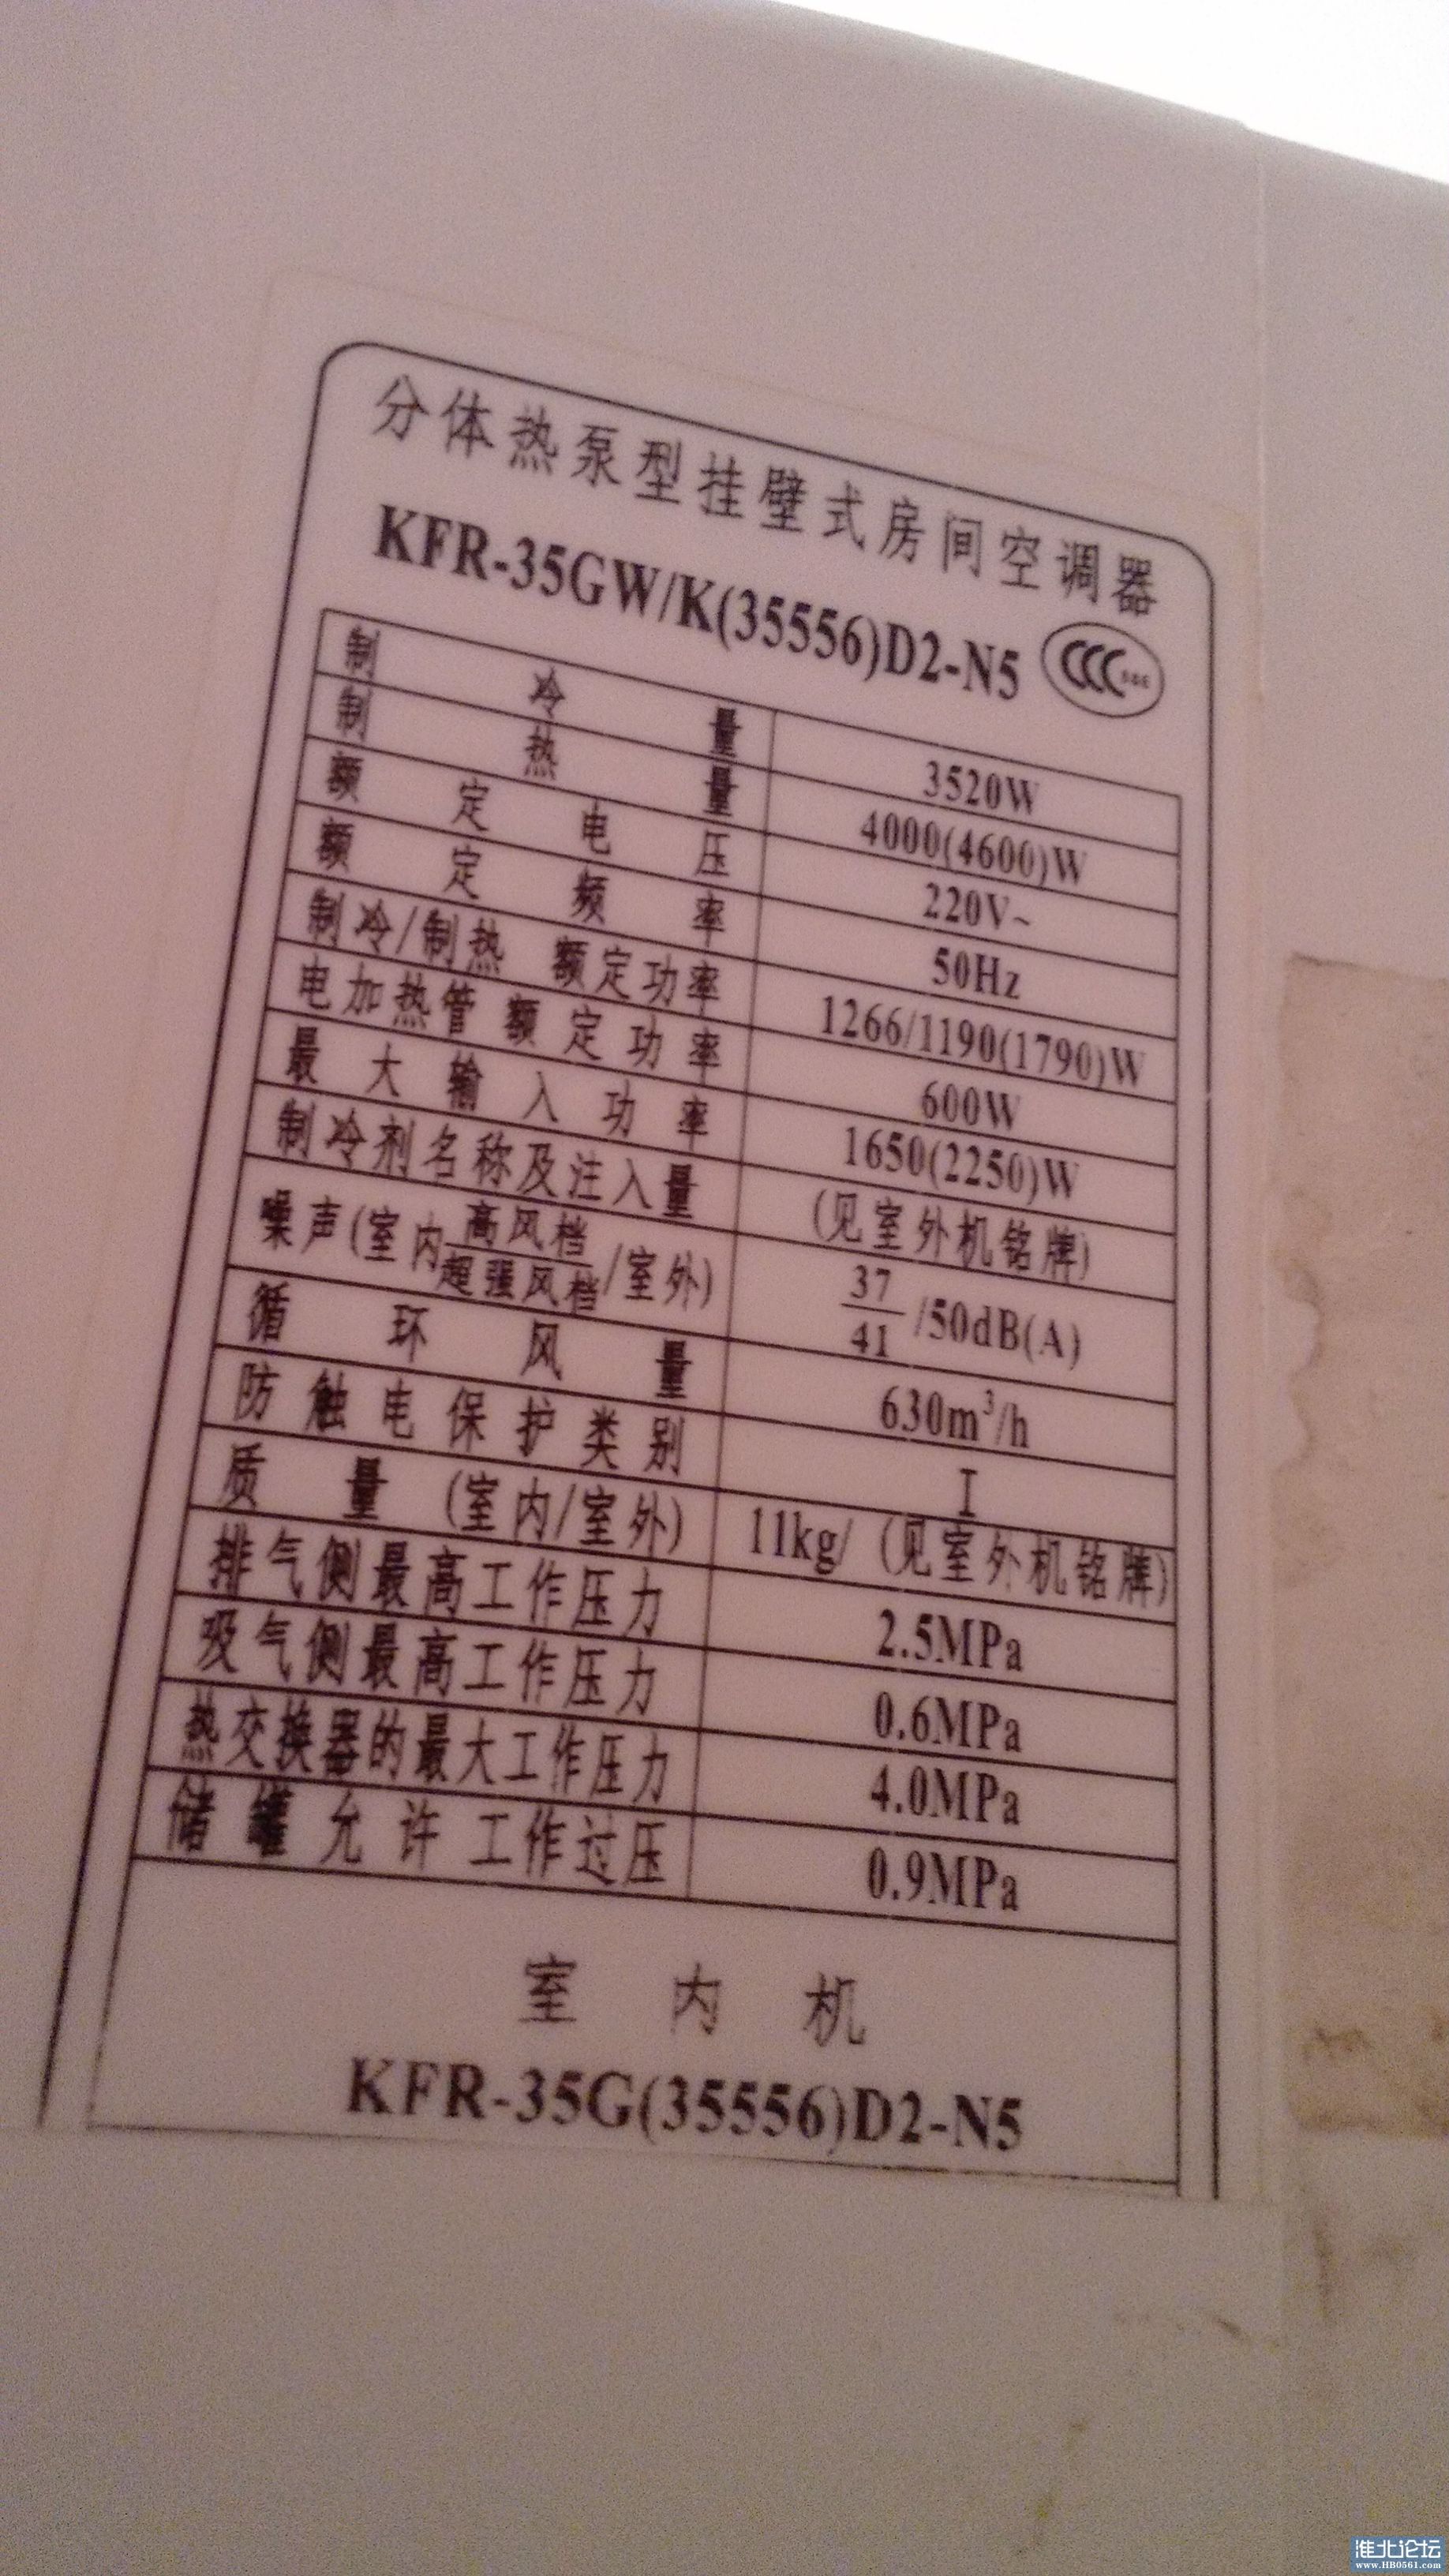 分体热泵型挂壁式房间空调器
KFR-35GW/K(35556)D2-N5
CCC
制冷量 3520W
制热量 4000(4600)W
额定电压 220V~
额定频率 50Hz
制冷/制热 额定功率 1266/1190(1790)W
电加热管 额定功率 600W
最大输入功率 1650(2250)W
制冷剂名称及注入量 (见室外机铭牌)
噪声(室内高风档/超强风档/室外) 37/41/50dB(A)
循环风量 630m³/h
防触电保护类别 I
质量(室内/室外) 11kg/(见室外机铭牌)
排气侧最高工作压力 2.5MPa
吸气侧最高工作压力 0.6MPa
热交换器的最大工作压力 4.0MPa
储罐允许工作过压 0.9MPa
室内机
KFR-35G(35556)D2-N5
淮北论坛
www.HB0561.com